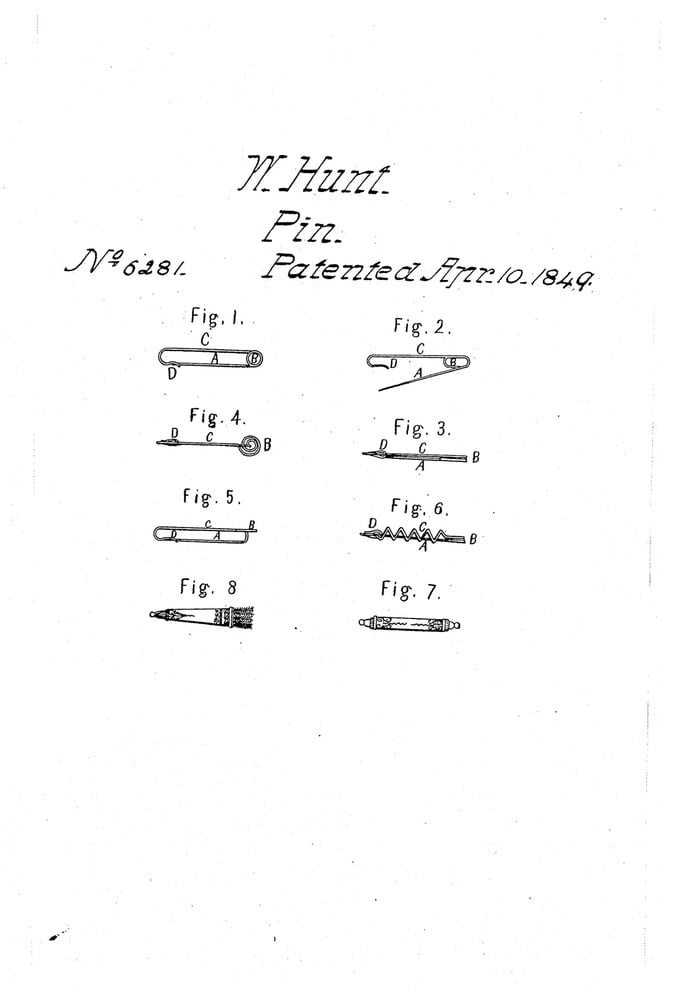 W. Hunt.
Pin.
Nº 6281. Patented Apr. 10. 1849.
Fig. 1. Fig. 2.
C C
A B D B
D A
Fig. 4. Fig. 3.
D C B D C B
A
Fig. 5. Fig. 6.
C B D C B
D A A
Fig. 8 Fig. 7.